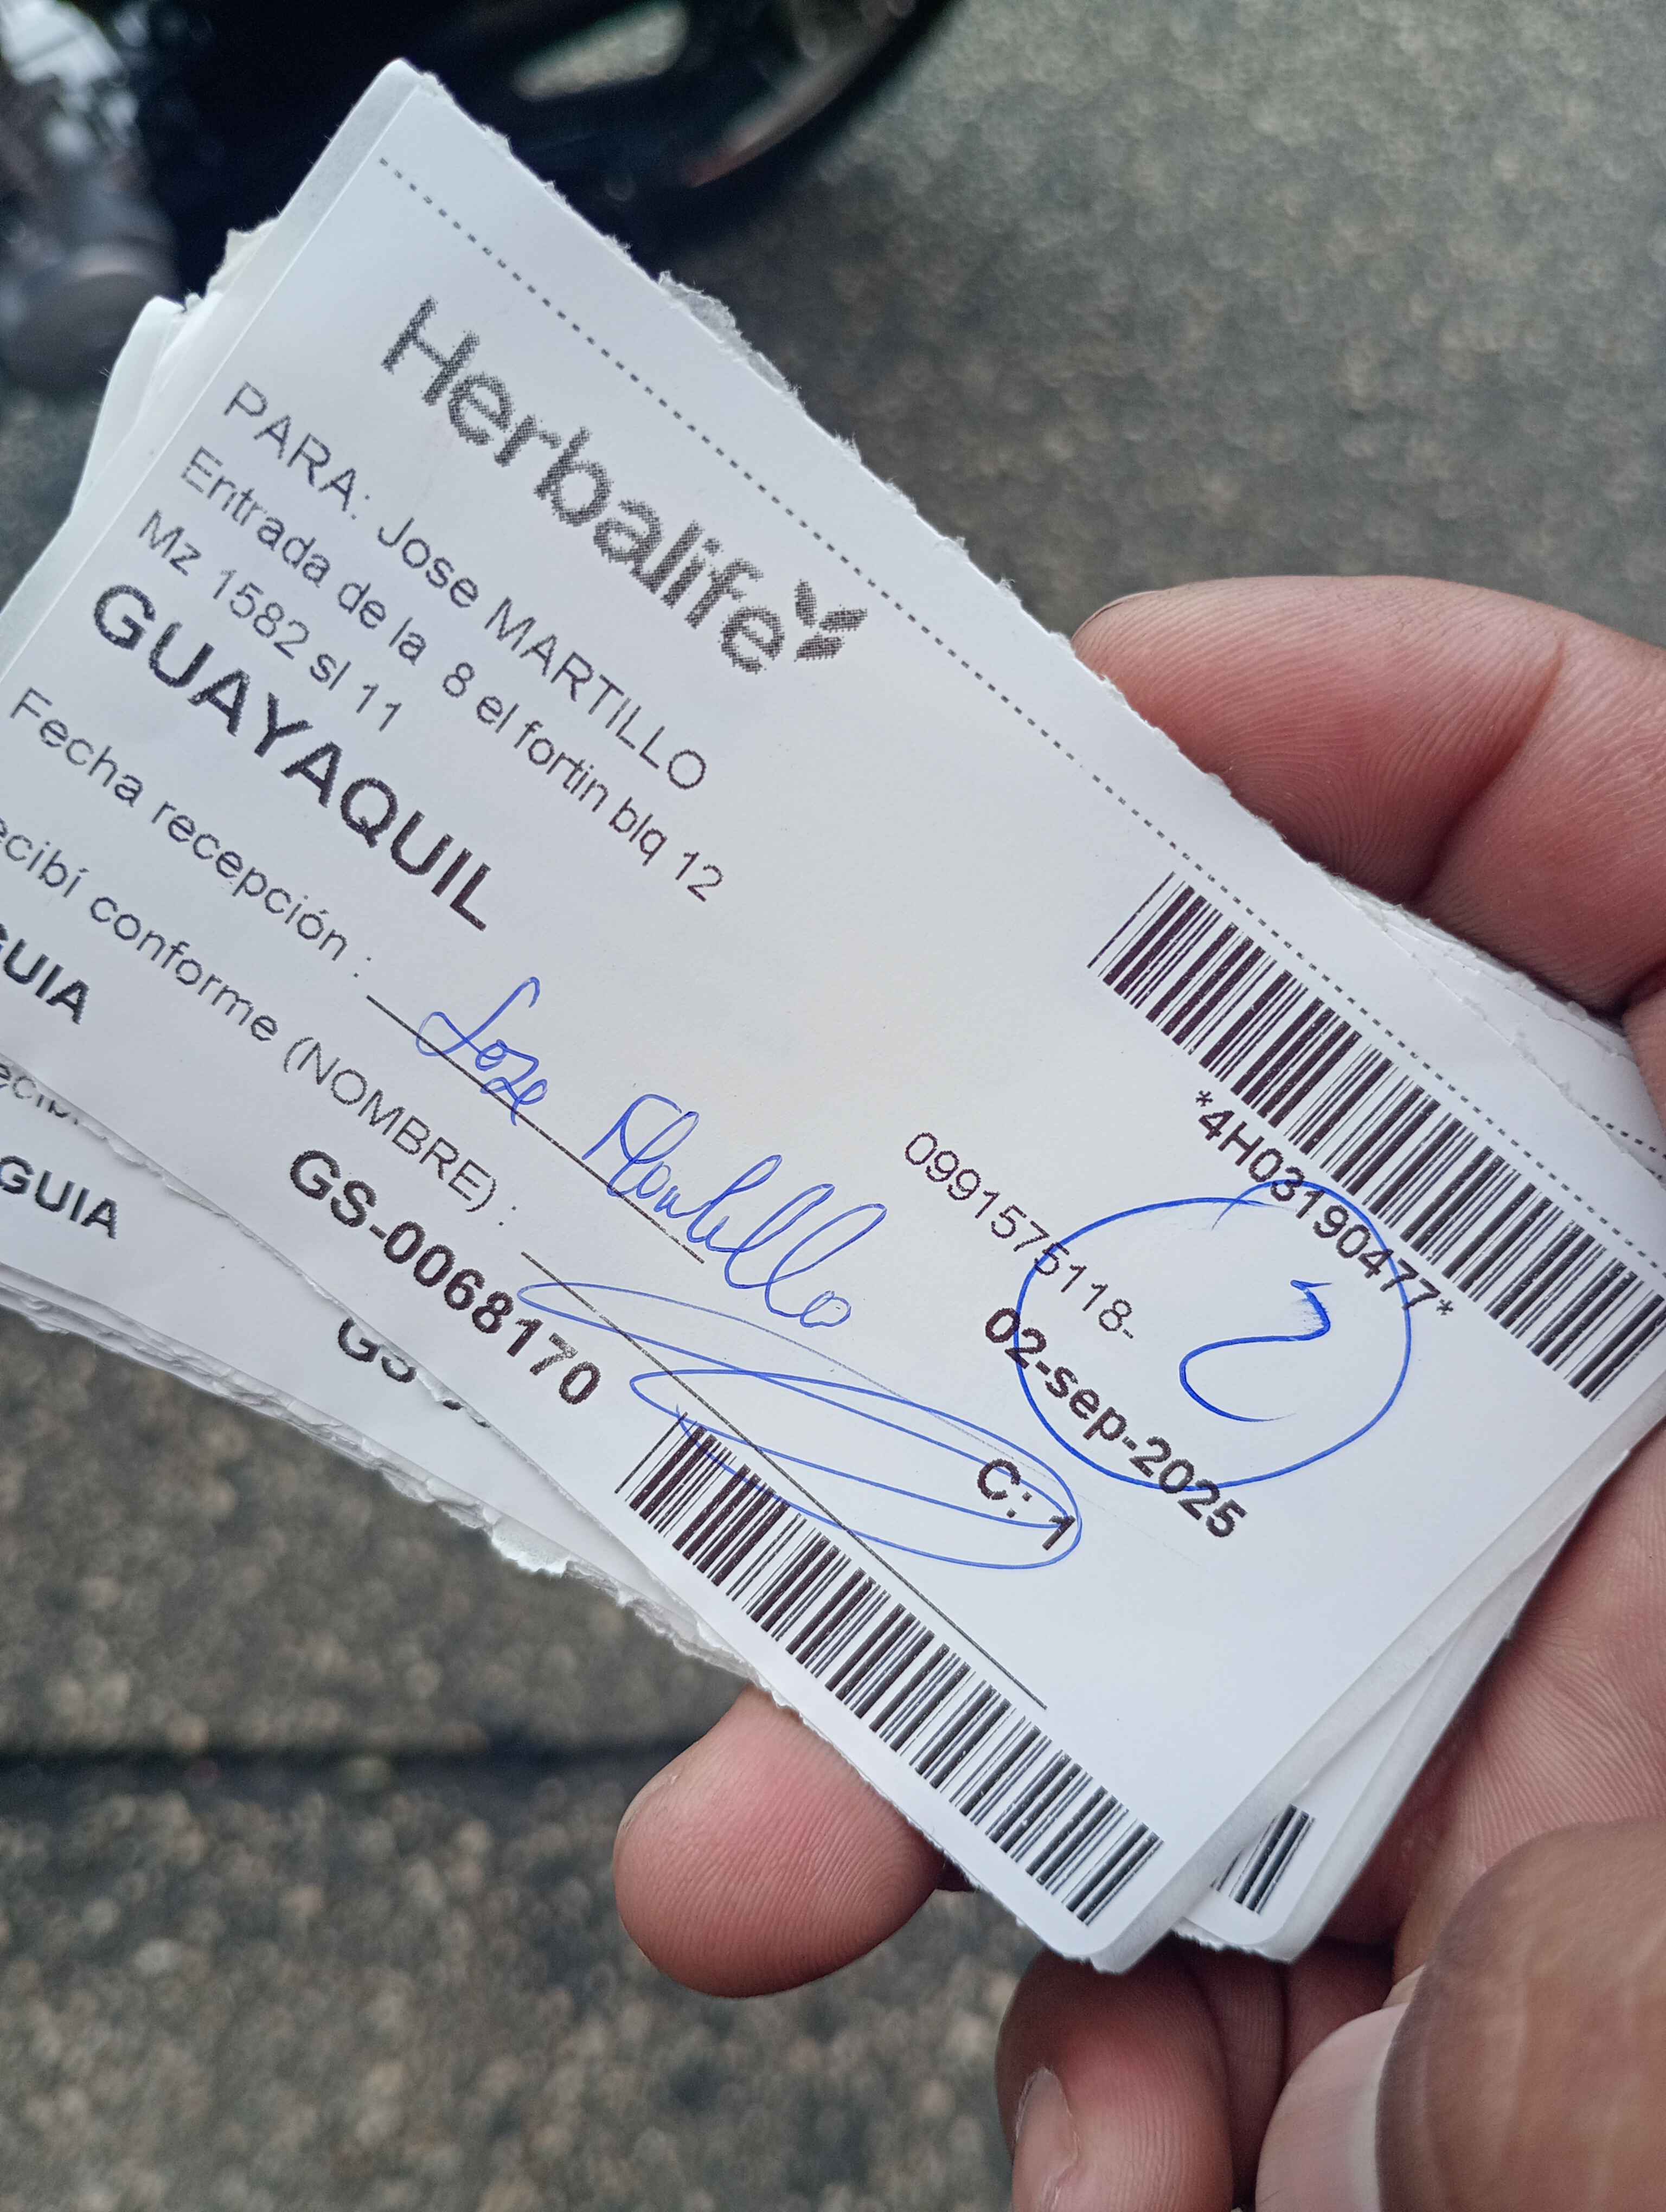 Herbalife
PARA: Jose MARTILLO
Entrada de la 8 el fortin blq 12
Mz 1582 sl 11
GUAYAQUIL
*4H03190477*
0991575118-
2
02-sep-2025
Fecha recepción :
Jose Martillo
ecibí conforme (NOMBRE) :
C: 1
GUIA
GS-0068170
GUIA